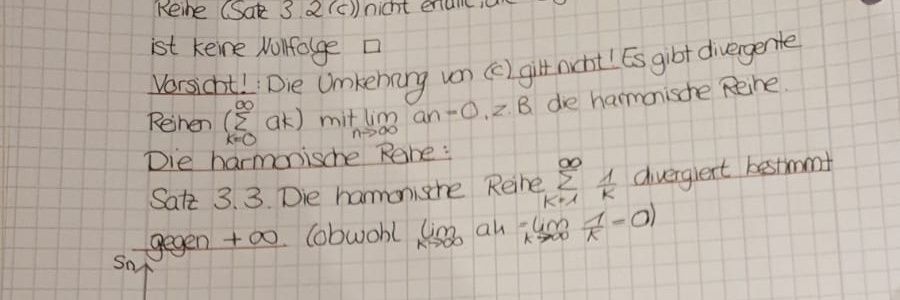 Reihe (Satz 3.2 (c)) nicht erfüllt,
ist keine Nullfolge □
Vorsicht!: Die Umkehrung von (c) gilt nicht! Es gibt divergente
Reihen (∑_{k=0}^{∞} ak) mit lim_{n→∞} an = 0, z.B die harmonische Reihe.
Die harmonische Reihe:
Satz 3.3. Die harmonische Reihe ∑_{k=1}^{∞} 1/k divergiert bestimmt
gegen +∞. (obwohl lim_{k→∞} ak = lim_{k→∞} 1/k = 0)
Sn